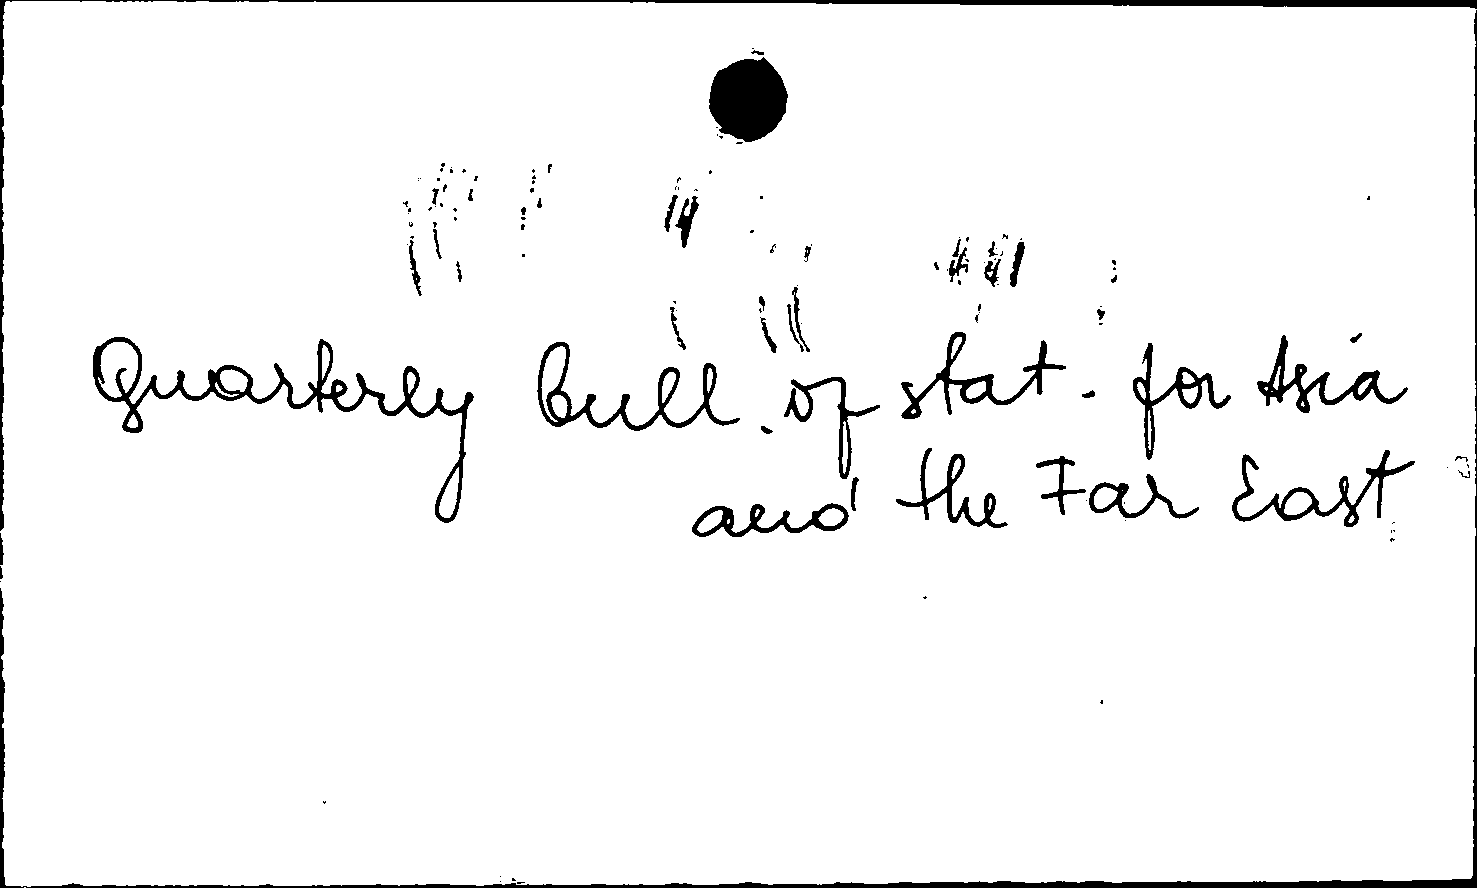 Quarterly bull. of stat. for Asia
and the Far East